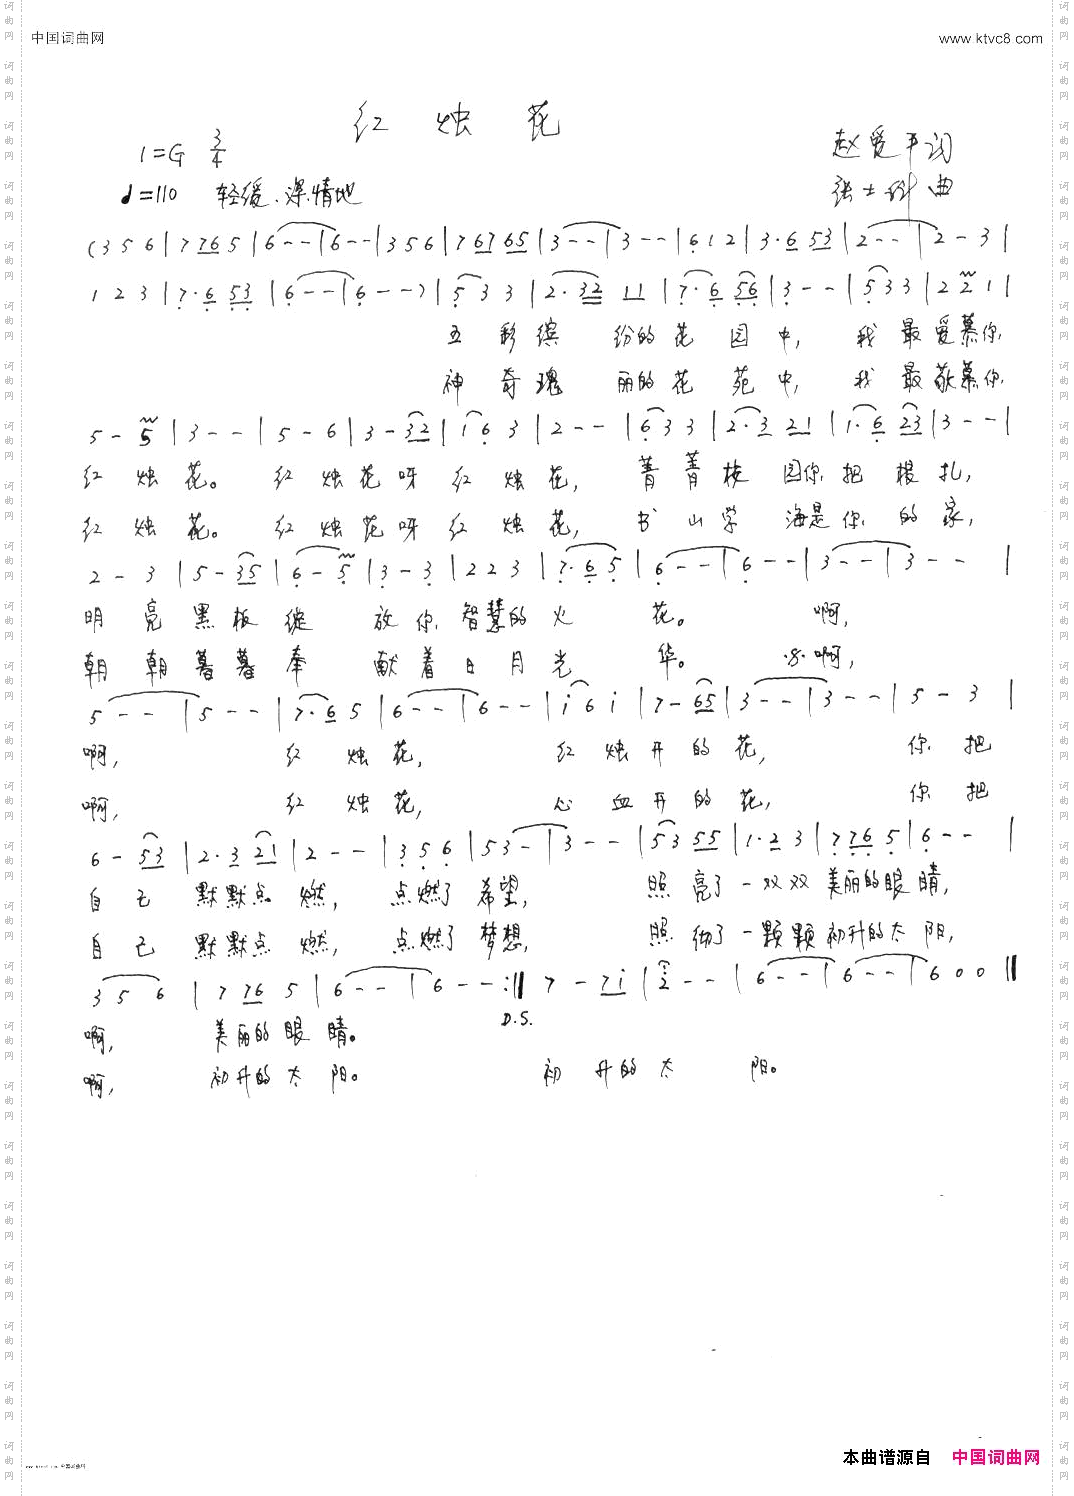 中国词曲网
www.ktvc8.com
红烛花
1=G 3/4
赵爱平词
♩=110 轻缓、深情地
张士 曲
(3 5 6 | 7 76 5 | 6 - - | 6 - - | 3 5 6 | 7 67 65 | 3 - - | 3 - - | 6 1 2 | 3· 6 53 | 2 - - | 2 - 3 |
1 2 3 | 7· 6 53 | 6 - - | 6 - - ) | 5 3 3 | 2· 32 11 | 7· 6 56 | 3 - - | 5 3 3 | 2 2 1 |
五彩缤纷的花园中, 我最爱慕你
神奇瑰丽的花苑中, 我最敬慕你
5 - 5 | 3 - - | 5 - 6 | 3 - 32 | 1 6 3 | 2 - - | 6 3 3 | 2· 3 21 | 1· 6 23 | 3 - - |
红烛花。 红烛花呀红烛花, 菁菁校园你把根扎,
红烛花。 红烛花呀红烛花, 书山学海是你的家,
2 - 3 | 5 - 35 | 6 - 5 | 3 - 3 | 2 2 3 | 7· 6 5 | 6 - - | 6 - - | 3 - - | 3 - - |
明亮黑板绽放你智慧的火花。 啊,
朝朝暮暮奉献着日月光华。 啊,
5 - - | 5 - - | 7· 6 5 | 6 - - | 6 - - | i 6 i | 7 - 65 | 3 - - | 3 - - | 5 - 3 |
啊, 红烛花, 红烛开的花, 你把
啊, 红烛花, 心血开的花, 你把
6 - 53 | 2· 3 21 | 2 - - | 3 5 6 | 53 - | 3 - - | 53 55 | 1· 2 3 | 7 76 5 | 6 - - |
自己默默点燃, 点燃了希望, 照亮了一双双美丽的眼睛,
自己默默点燃, 点燃了梦想, 照彻了一颗颗初升的太阳,
3 5 6 | 7 76 5 | 6 - - | 6 - - :‖ 7 - 7i | 2 - - | 6 - - | 6 - - | 6 0 0 ‖
D.S.
啊, 美丽的眼睛。
啊, 初升的太阳。 初升的太阳。
本曲谱源自 中国词曲网